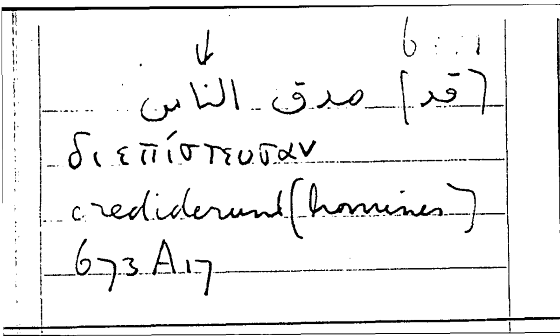 6 : : 1
[قد] صدق الناس
διεπίστευσαν
crediderunt [homines]
673 A 17